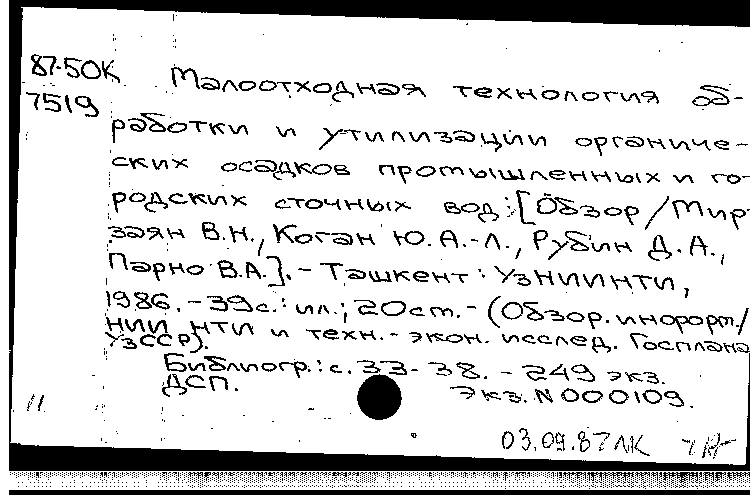 87-50К Малоотходная технология об-
7519
работки и утилизации органиче-
ских осадков промышленных и го-
родских сточных вод: [Обзор/Мир-
заян В.Н., Коган Ю.А.-Л., Рубин Д.А.,
Парно В.А.]. - Ташкент: УзНИИНТИ,
1986. - 39с.: ил.; 20см. - (Обзор. информ./
НИИ НТИ и техн.-экон. исслед. Госплана
УзССР).
Библиогр.: с. 33-38. - 249 экз.
ДСП. Экз. N 000109.
11
03.09.87 ЛК